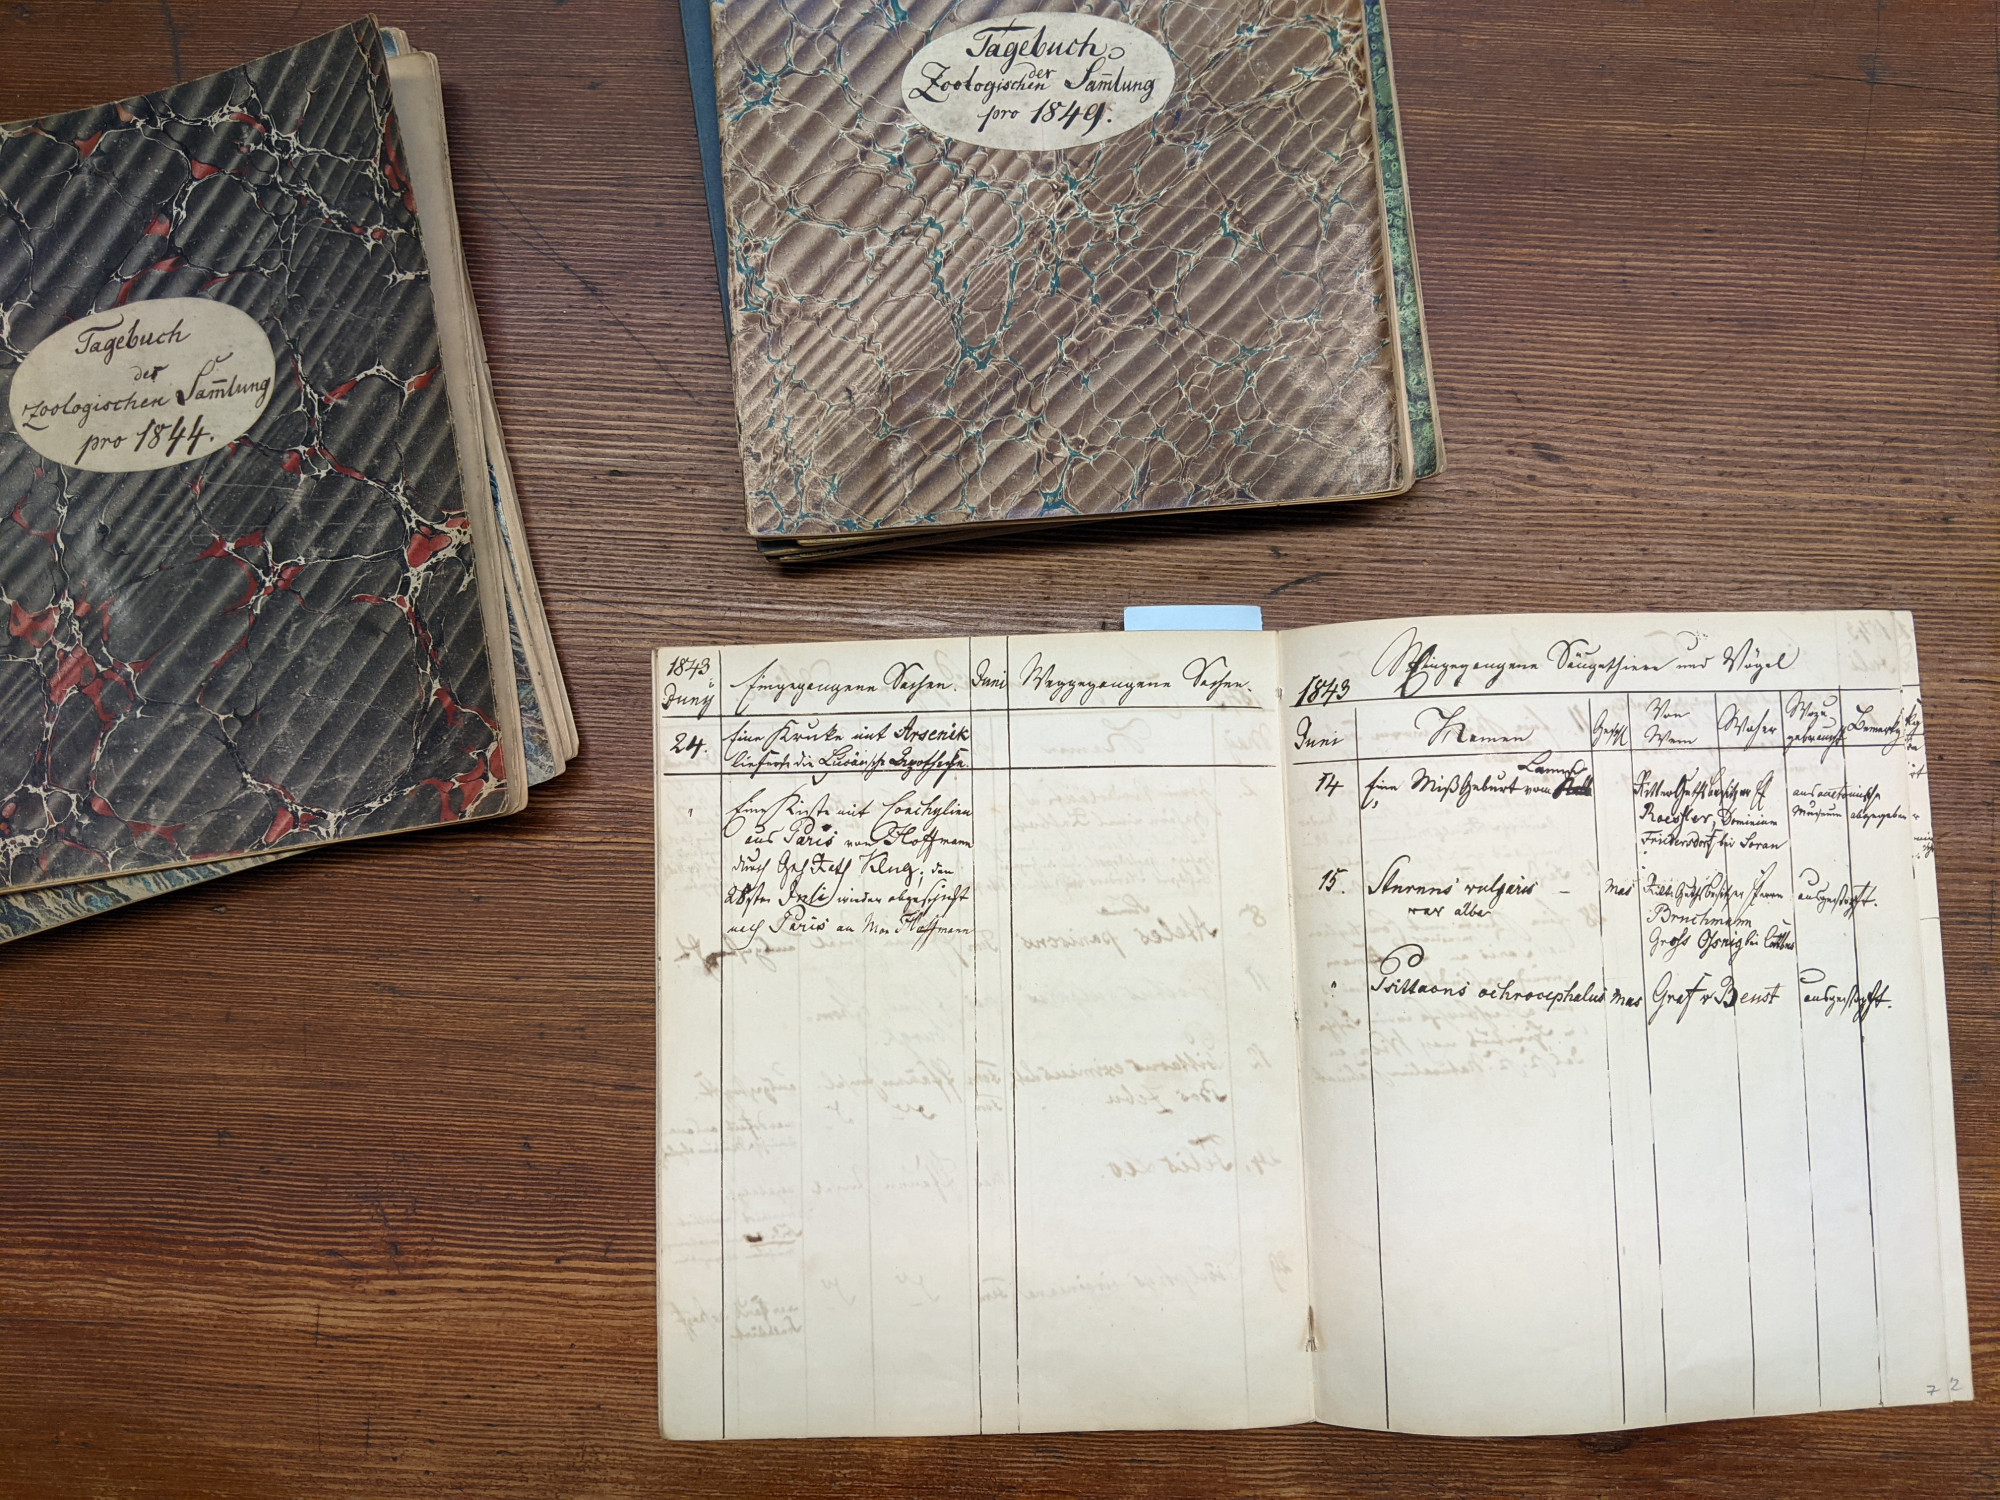 Tagebuch
der
Zoologischen Sam̄lung
pro 1844.
Tagebuch
der
Zoologischen Sam̄lung
pro 1849.
1843
Juny
Eingegangene Sachen.
Juni
Weggegangene Sachen.
24.
Eine Kruke mit Arsenik
lieferte die Apotheke.
"
Eine Kiste mit Conchylien
aus Paris von Hoffmann
durch Geh Rath Klug; den
28sten Juli wieder abgeschickt
nach Paris an Hoffmann
Eingegangene Säugethiere und Vögel
1843
Juni
Namen
Geschl
Von
Wem
Woher
Wozu
gebraucht
Bemerkg
14
Eine Mißgeburt vom Lamm
Ritter Gutsbesitzer
Roessler, Dominium
Friedersdorf bei Soran
ans anatomische
Museum abgegeben
15.
Sturnus vulgaris
var alba
mas
Ritt. Gutsbesitzer Herrn
Bruchmann
Gross Osnig bei Cottbus
ausgestopft.
"
Psittacus ochrocephalus
mas
Graf v Beust
ausgestopft.
7
2